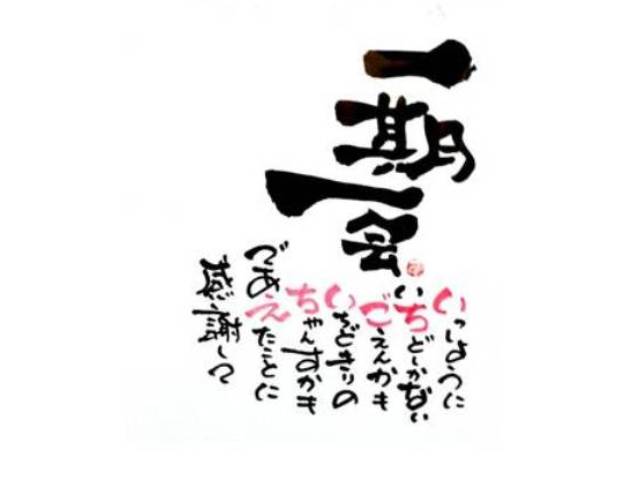 一期一会
いっしょうに
いちどしかない
ごえんかも
いちどきりの
ちゃんすかも
であえたことに
感謝して